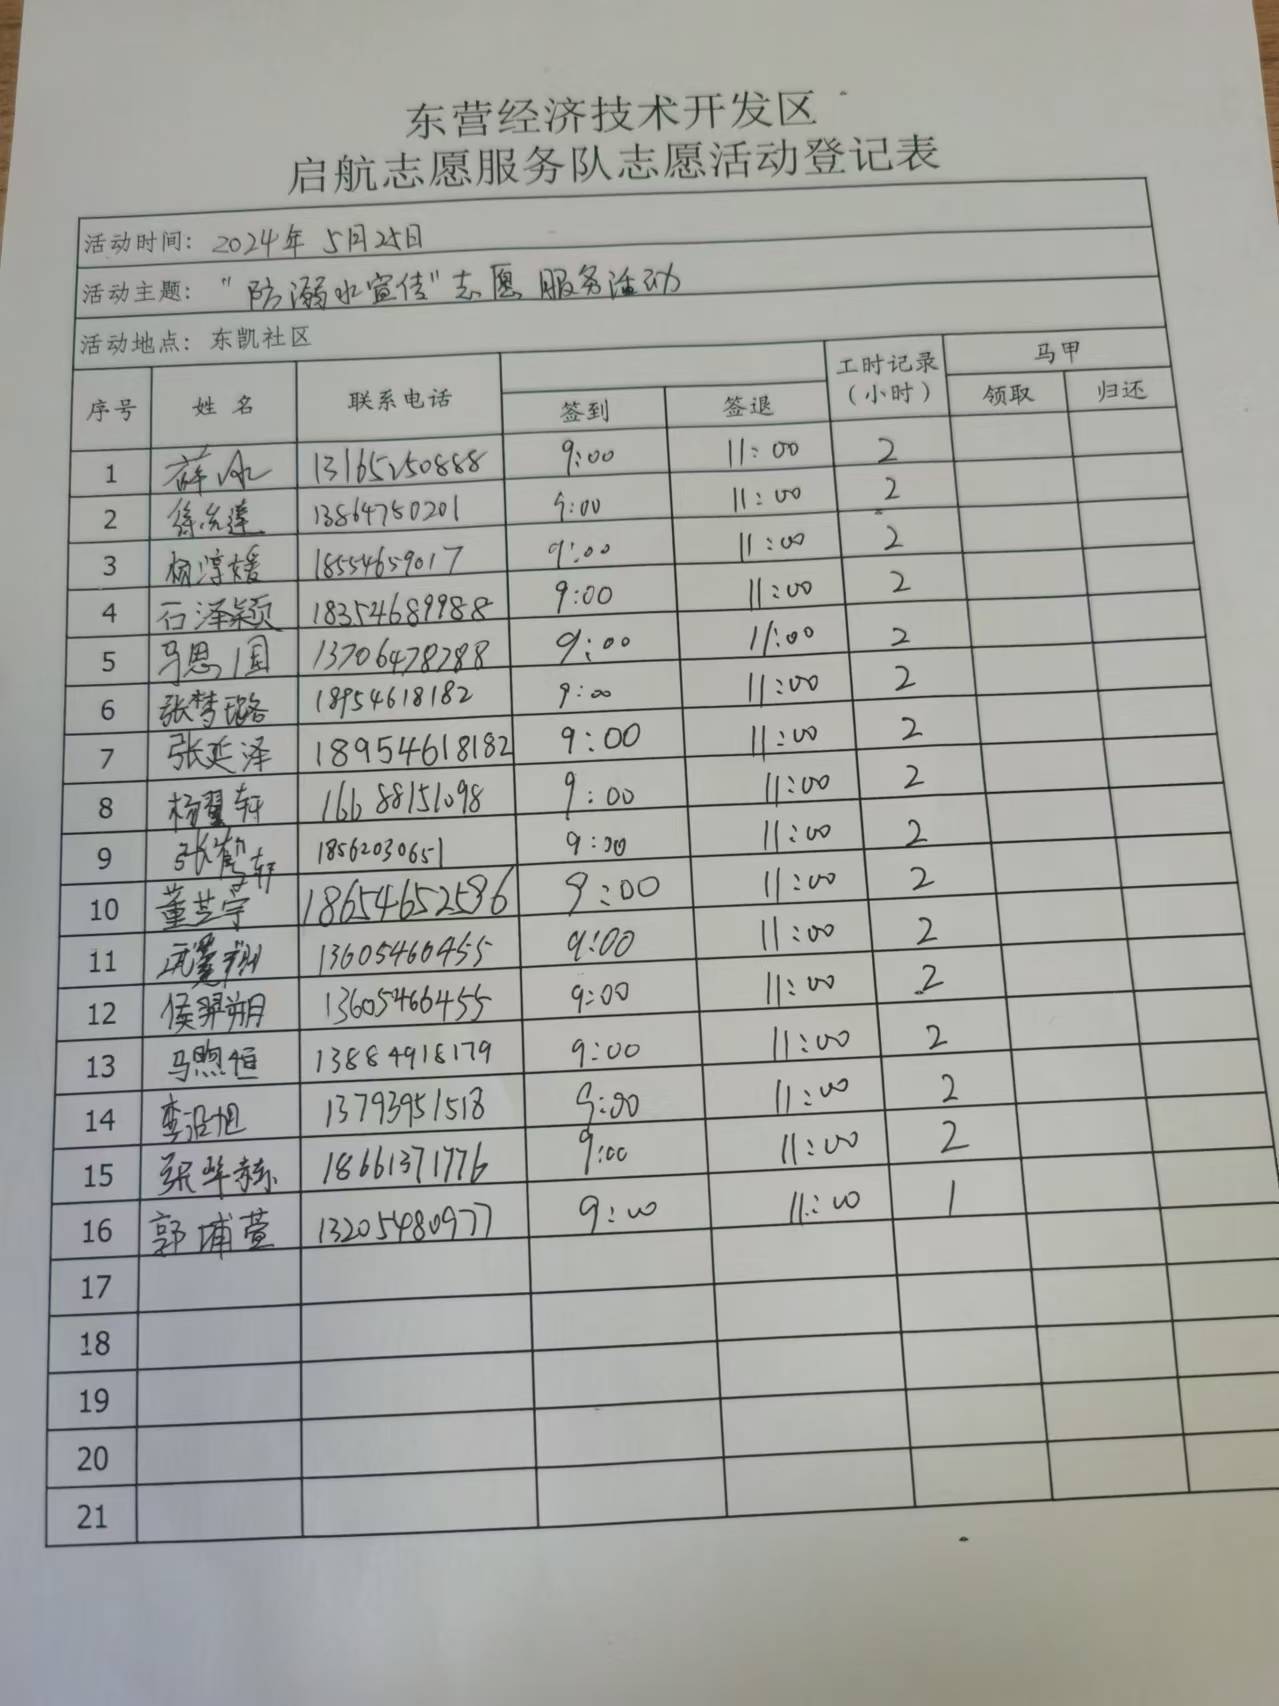 东营经济技术开发区
启航志愿服务队志愿活动登记表
活动时间: 2024年 5月25日
活动主题: "防溺水宣传"志愿服务活动
活动地点: 东凯社区
序号 姓名 联系电话 签到 签退 工时记录(小时) 马甲 领取 归还
1 薛冰 13165250888 9:00 11:00 2
2 13864750201 9:00 11:00 2
3 杨淳媛 18554659017 9:00 11:00 2
4 石泽颖 18354689988 9:00 11:00 2
5 马思 13706478788 9:00 11:00 2
6 张梦璐 18954618182 9:00 11:00 2
7 张延泽 18954618182 9:00 11:00 2
8 杨翼轩 16688151098 9:00 11:00 2
9 张鹤轩 18562030651 9:00 11:00 2
10 董芸宇 18654652586 9:00 11:00 2
11 13605460455 9:00 11:00 2
12 侯羿朔 13605466455 9:00 11:00 2
13 马煦恒 13884918179 9:00 11:00 2
14 13793951518 9:00 11:00 2
15 张华赫 18661371776 9:00 11:00 2
16 郭埔萱 13205480977 9:00 11:00 1
17
18
19
20
21